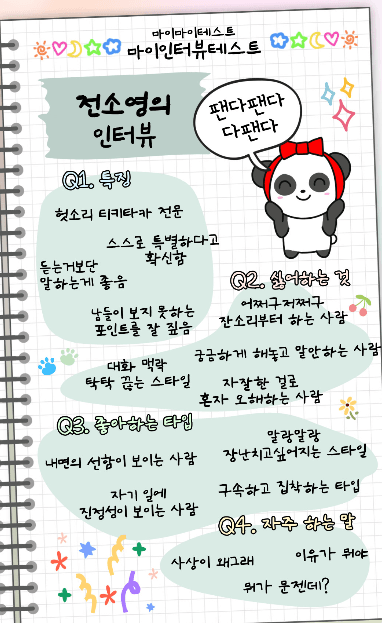 마이마이테스트
마이인터뷰테스트
전소영의
인터뷰
팬다팬다
다팬다
Q1. 특징
헛소리 티키타카 전문
스스로 특별하다고
확신함
듣는거보단
말하는게 좋음
남들이 보지 못하는
포인트를 잘 짚음
Q2. 싫어하는 것
어쩌구저쩌구
잔소리부터 하는 사람
궁금하게 해놓고 말안하는 사람
대화 맥락
탁탁 끊는 스타일
자잘한 걸로
혼자 오해하는 사람
Q3. 좋아하는 타입
내면의 선함이 보이는 사람
말랑말랑
장난치고싶어지는 스타일
자기 일에
진정성이 보이는 사람
구속하고 집착하는 타입
Q4. 자주 하는 말
사상이 왜그래
이유가 뭐야
뭐가 문젠데?